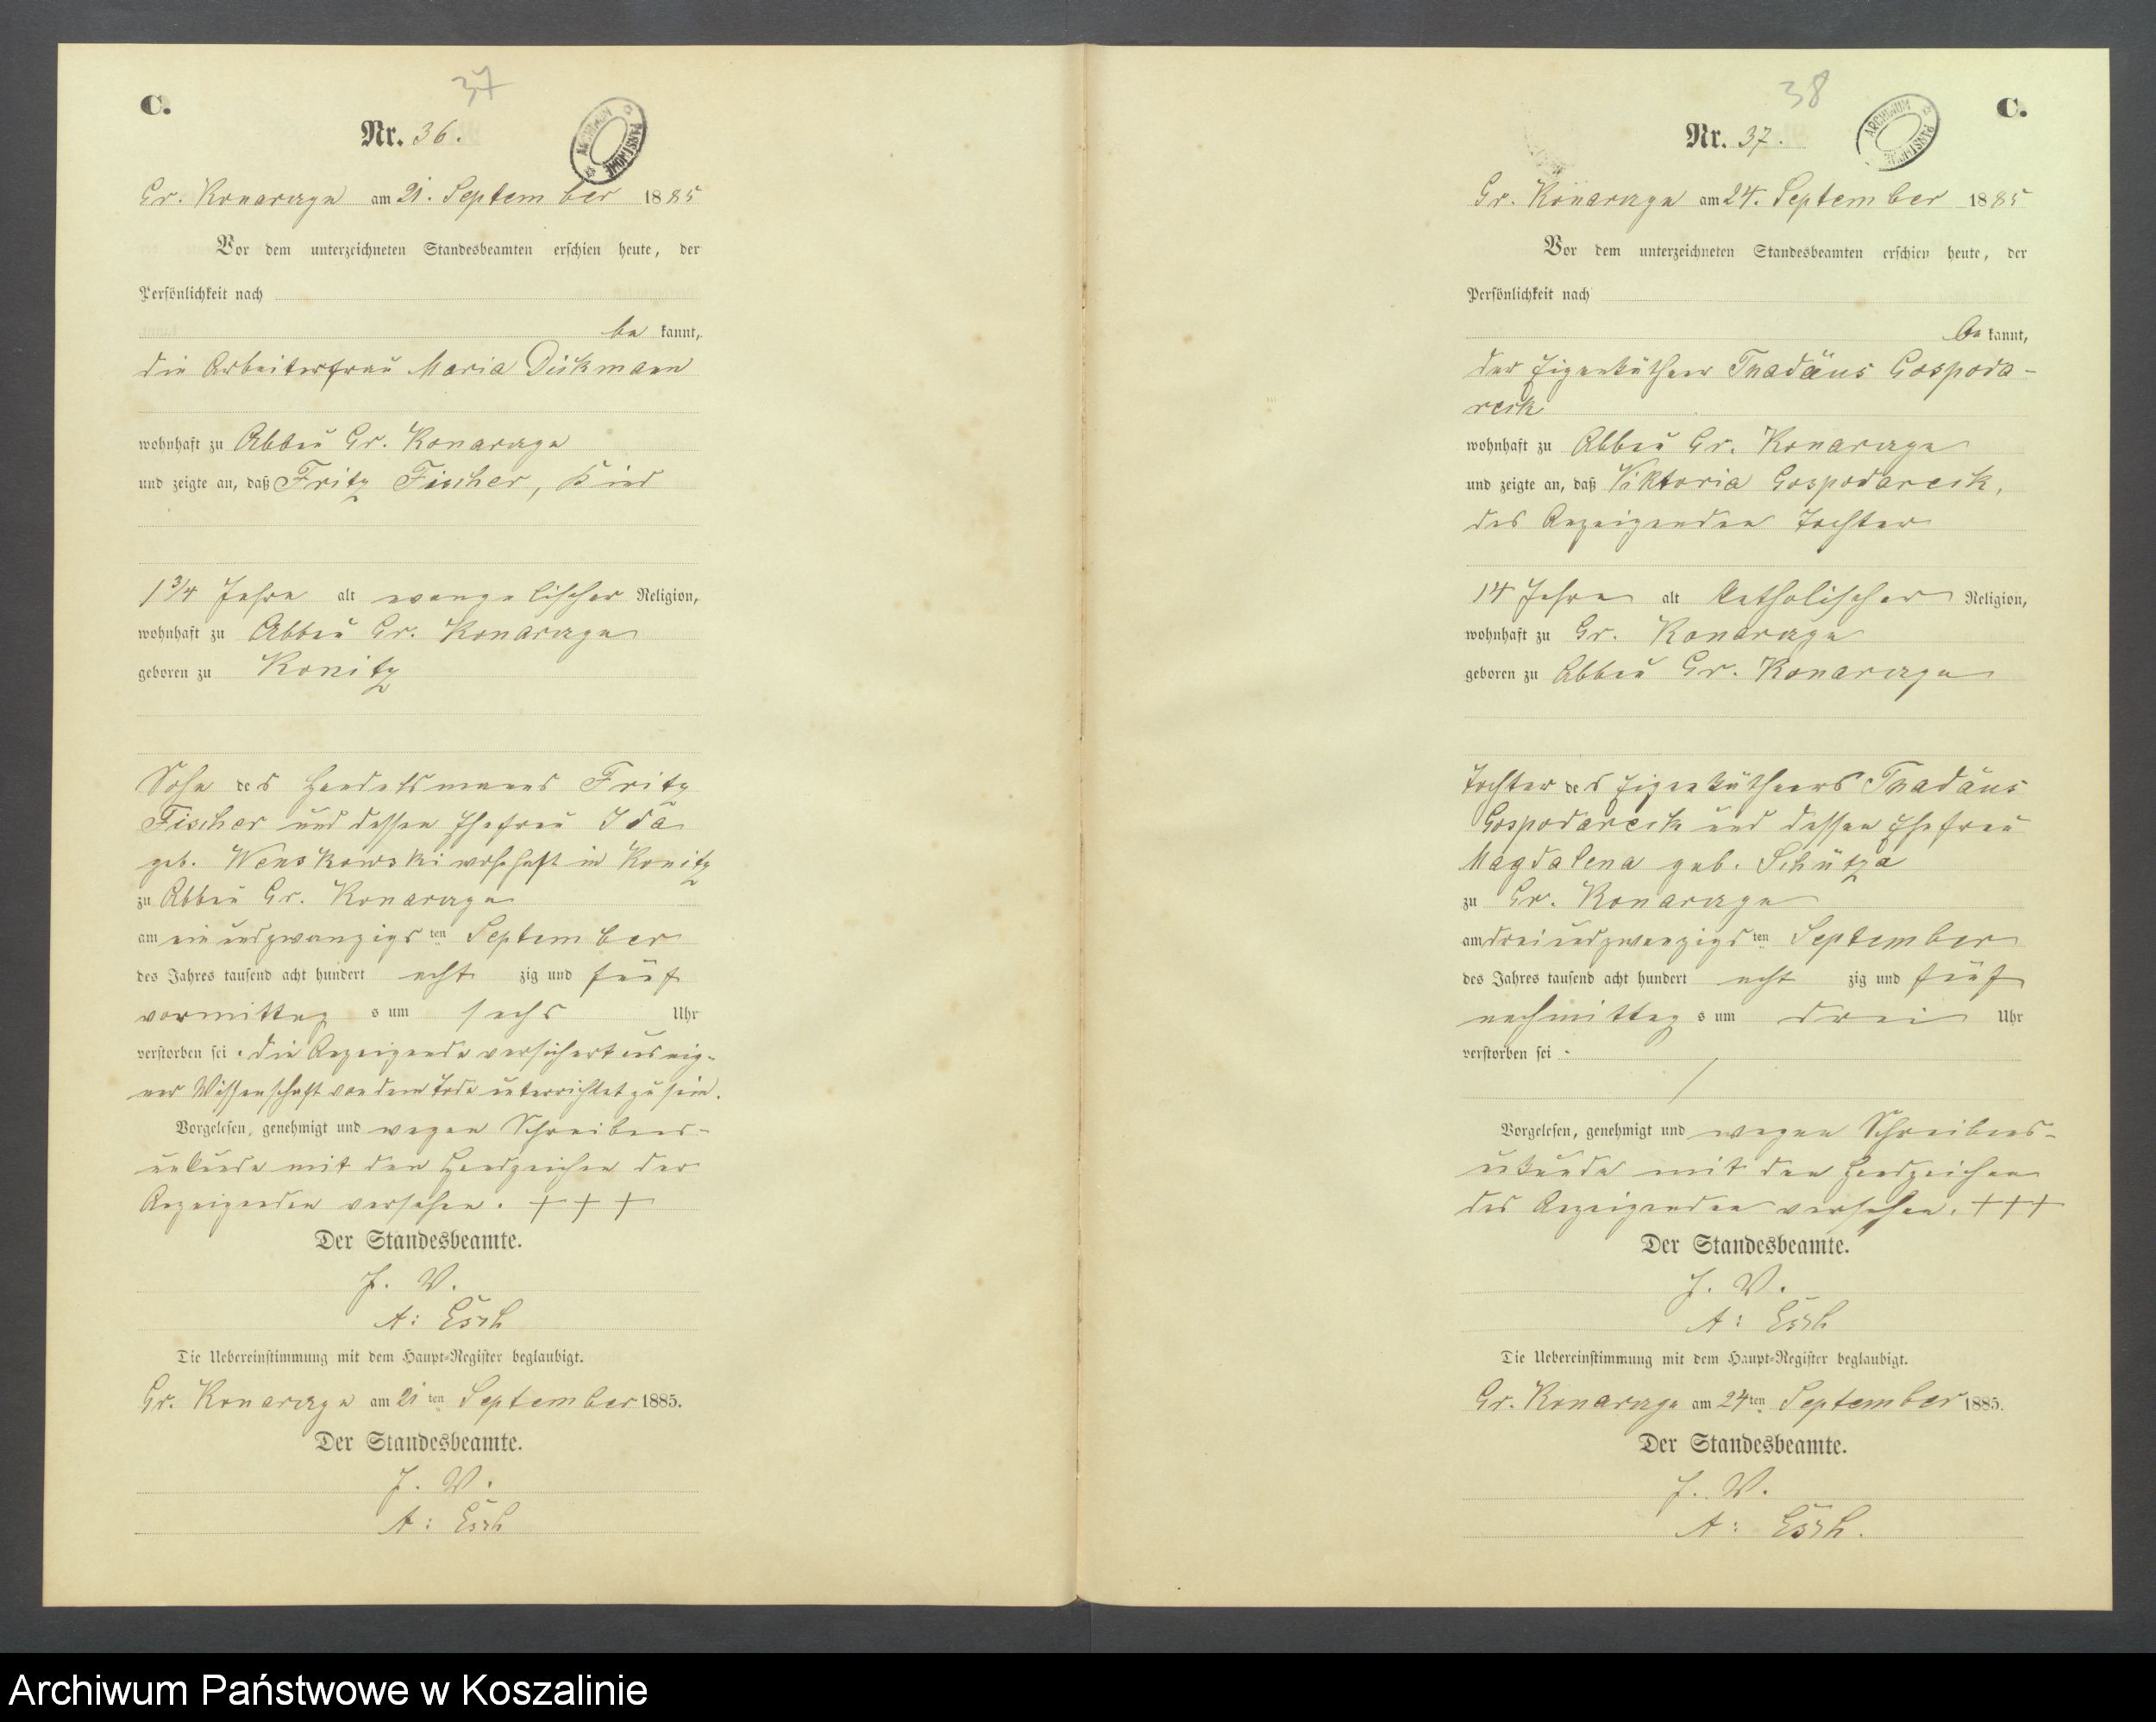 37
C.
Nr. 36.
ARCHIWUM PAŃSTWOWE
Gr. Konarczyn am 21. September 1885
Vor dem unterzeichneten Standesbeamten erschien heute, der
Persönlichkeit nach
be kannt,
die Arbeiterfrau Maria Dickmann
wohnhaft zu Abbau Gr. Konarczyn
und zeigte an, daß Fritz Fischer, Kind
1 3/4 Jahre alt evangelischer Religion,
wohnhaft zu Abbau Gr. Konarczyn
geboren zu Konitz
Sohn des Handelsmanns Fritz
Fischer und dessen Ehefrau Ida
geb. Wenskowski wohnhaft in Konitz
zu Abbau Gr. Konarczyn
am ein und zwanzigsten September
des Jahres tausend acht hundert acht zig und fünf
vormittags um sechs Uhr
verstorben sei. die Anzeigende versichert aus eig-
ner Wissenschaft von dem Tode unterrichtet zu sein.
Vorgelesen, genehmigt und wegen Schreibens-
unkunde mit den Handzeichen der
Anzeigenden versehen. + + +
Der Standesbeamte.
J. V.
A: Esch
Die Uebereinstimmung mit dem Haupt-Register beglaubigt.
Gr. Konarczyn am 21ten September 1885.
Der Standesbeamte.
J. V.
A: Esch
38
C.
Nr. 37.
ARCHIWUM PAŃSTWOWE
Gr. Konarczyn am 24. September 1885
Vor dem unterzeichneten Standesbeamten erschien heute, der
Persönlichkeit nach
be kannt,
der Eigenkäthner Thadäus Gospoda-
reck
wohnhaft zu Abbau Gr. Konarczyn
und zeigte an, daß Viktoria Gospodareck,
des Anzeigenden Tochter
14 Jahre alt katholischer Religion,
wohnhaft zu Gr. Konarczyn
geboren zu Abbau Gr. Konarczyn
Tochter des Eigenkäthners Thadäus
Gospodareck und dessen Ehefrau
Magdalena geb. Schütza
zu Gr. Konarczyn
am drei und zwanzigsten September
des Jahres tausend acht hundert acht zig und fünf
nachmittags um drei Uhr
verstorben sei.
Vorgelesen, genehmigt und wegen Schreibens-
unkunde mit den Handzeichen
des Anzeigenden versehen. +++
Der Standesbeamte.
J. V.
A: Esch
Die Uebereinstimmung mit dem Haupt-Register beglaubigt.
Gr. Konarczyn am 24ten September 1885.
Der Standesbeamte.
J. V.
A: Esch.
Archiwum Państwowe w Koszalinie